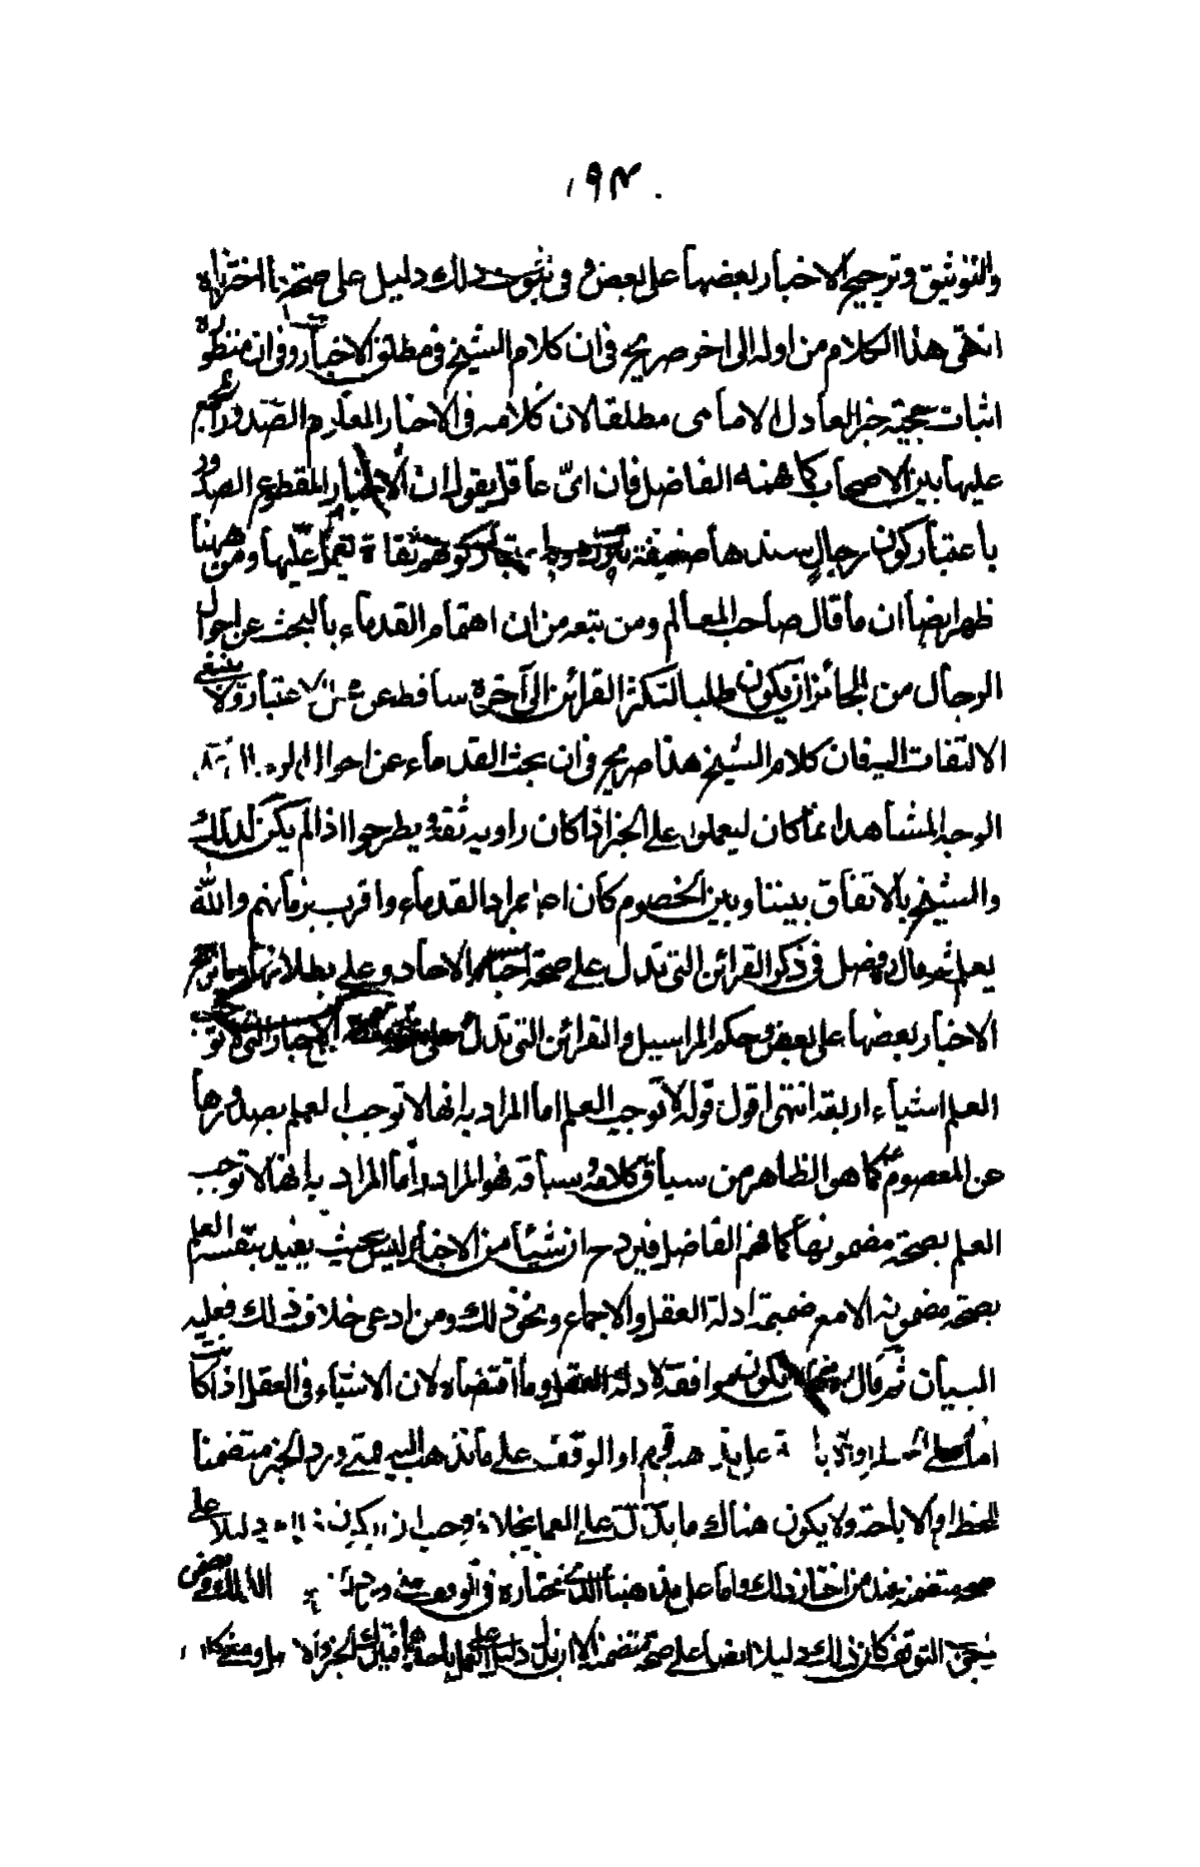 ١٩٣
والتوثيق وترجيح الاخبار بعضها على بعض وفى ثبوت ذلك دليل على صحة ما اخترناه
انتهى هذا الكلام من اوله الى اخره صريح فى ان كلام الشيخ فى مطلق الاخبار وفى ان منظوره
اثبات حجية خبر العادل الامامى مطلقا لان كلامه فى الاخبار المعلوم الصدور المجمع
عليها بين الاصحاب كما فهمه الفاضل فان اى عاقل يقول ان الاخبار المقطوع الصدور
باعتبار كون رجال سندها ضعيفة كونهم ثقاة يعمل عليها ومن ههنا
ظهر ايضا ان ما قال صاحب المعالم ومن تبعه من ان اهتمام القدماء بالبحث عن احوال
الرجال من الجائز ان يكون طلبا لتكثر القرائن الى آخره ساقط عن الاعتبار ولا ينبغى
الالتفات اليه فان كلام الشيخ هذا صريح فى ان بحث القدماء عن احوال
الوجه المشاهد انما كان ليعملوا على الخبر اذا كان راويه ثقة ويطرحوا اذا لم يكن كذلك
والشيخ بالاتفاق بيننا وبين الخصوم كان بمراد القدماء واقرب بزمانهم والله
يعلم ثم قال فصل فى ذكر القرائن التى تدل على صحة اخبار الاحاد وعلى بطلانها وما ترجح
الاخبار بعضها على بعض وحكم المراسيل والقرائن التى تدل على صحة الاخبار التى لا توجب
العلم اشياء اربعة انتهى اقول قوله لا توجب العلم اما المراد به انها لا توجب العلم بصدورها
عن المعصوم كما هو الظاهر من سياق كلامه وسباقه فهو المراد واما المراد به انها لا توجب
العلم بصحة مضمونها كما فهم الفاضل فيرد ح ان شيئا من الاخبار ليس بحيث يفيد بنفسه العلم
بصحة مضمونه الا مع ضميمة ادلة العقل والاجماع ونحو ذلك ومن ادعى خلاف ذلك فعليه
البيان ثم قال منها ان تكون موافقة لادلة العقل وما اقتضاه لان الاشياء فى العقل اذا كانت
اما على او الوقف على ما نذهب اليه فمتى ورد الخبر متضمنا
للحظر او الاباحة ولا يكون هناك ما يدل على العمل بخلافه وجب ان يكون ذلك دليلا على
صحة متضمنه عند من اختار ذلك واما على مذهبنا الذى نختاره فى الوقف
التوقف كان ذلك دليلا ايضا على صحة متضمنه الا ان يدل دليل على العمل